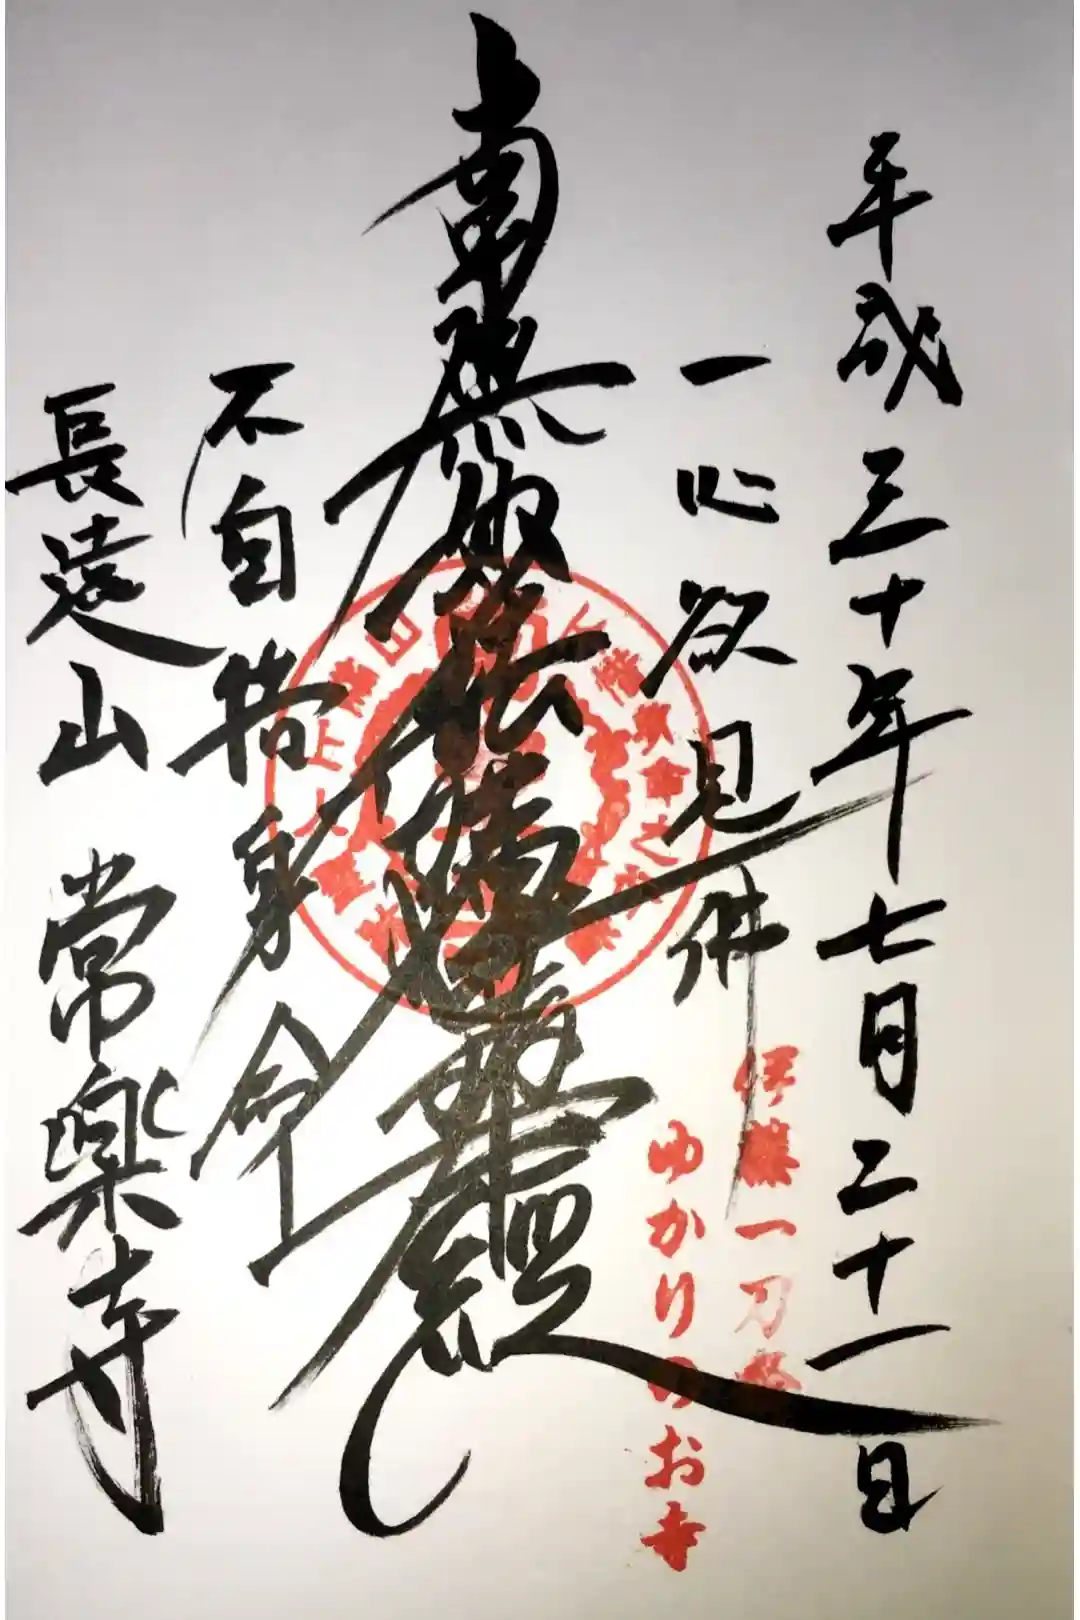 平成三十年七月二十一日
一心欲見佛
伊藤一刀斎
ゆかりのお寺
南無妙法蓮華経
不自惜身命
長遠山 常樂寺